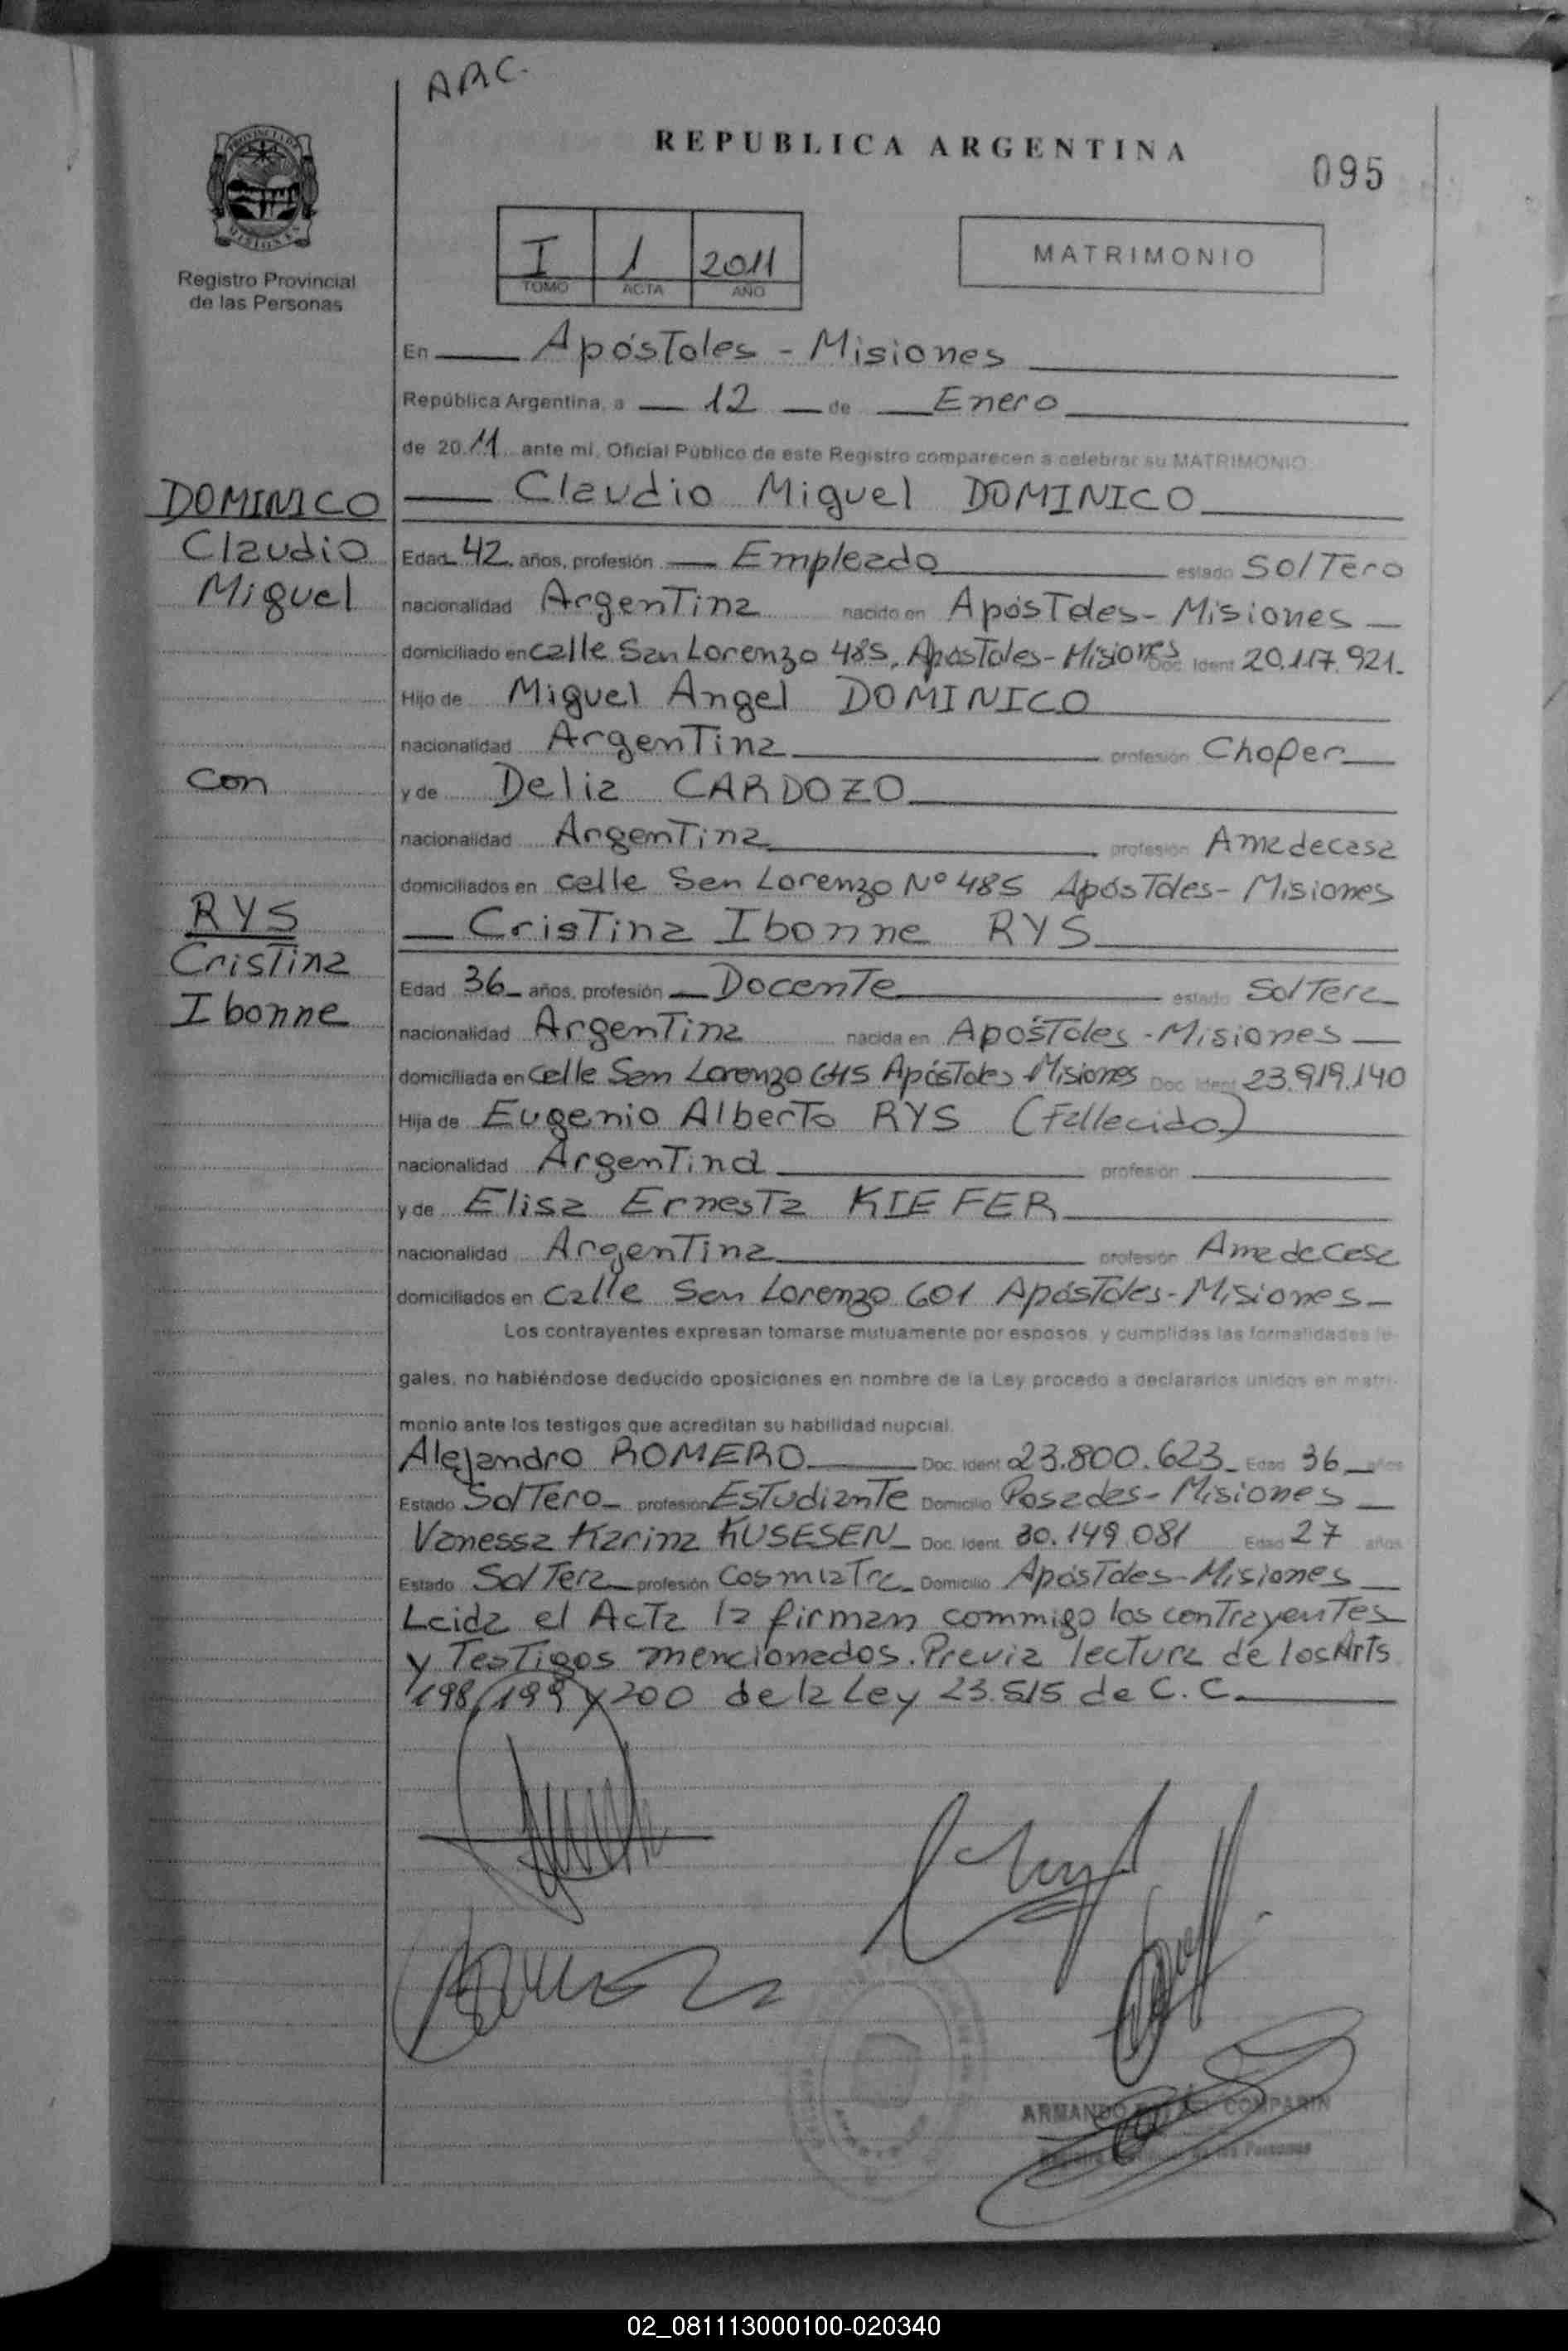 ARC.
REPUBLICA ARGENTINA
095
PROVINCIA DE
MISIONES
Registro Provincial
de las Personas
I 1 2011
TOMO ACTA AÑO
MATRIMONIO
En Apóstoles - Misiones
República Argentina, a 12 de Enero
de 2011 ante mi, Oficial Público de este Registro comparecen a celebrar su MATRIMONIO
DOMINICO
Claudio
Miguel
con
RYS
Cristina
Ibonne
Claudio Miguel DOMINICO
Edad 42 años, profesión Empleado estado Soltero
nacionalidad Argentina nacido en Apóstoles - Misiones
domiciliado en calle San Lorenzo 485, Apóstoles - Misiones Doc. Ident 20.117.921.
Hijo de Miguel Angel DOMINICO
nacionalidad Argentina profesión Chofer
y de Delia CARDOZO
nacionalidad Argentina profesión Ama de casa
domiciliados en calle San Lorenzo Nº 485 Apóstoles - Misiones
Cristina Ibonne RYS
Edad 36 años, profesión Docente estado Soltera
nacionalidad Argentina nacida en Apóstoles - Misiones
domiciliada en calle San Lorenzo Apóstoles Misiones Doc. Ident 23.919.140
Hija de Eugenio Alberto RYS (Fallecido)
nacionalidad Argentina profesión
y de Elisa Ernesta KIEFER
nacionalidad Argentina profesión Ama de Casa
domiciliados en calle San Lorenzo 601 Apóstoles - Misiones
Los contrayentes expresan tomarse mutuamente por esposos, y cumplidas las formalidades le-
gales, no habiéndose deducido oposiciones en nombre de la Ley procedo a declararlos unidos en matri-
monio ante los testigos que acreditan su habilidad nupcial.
Alejandro ROMERO Doc. Ident 23.800.623 Edad 36 años
Estado Soltero profesión Estudiante Domicilio Posadas - Misiones
Vanessa Karina KUSESEN Doc. Ident. 30.149.081 Edad 27 años
Estado Soltera profesión Cosmiatra Domicilio Apóstoles - Misiones
Leida el Acta la firman commigo los contrayentes
y Testigos mencionados. Previa lectura de los Arts
198, 199 y 200 de la Ley 23.515 de C.C.
ARMANDO COMPARIN
de las Personas
02_081113000100-020340